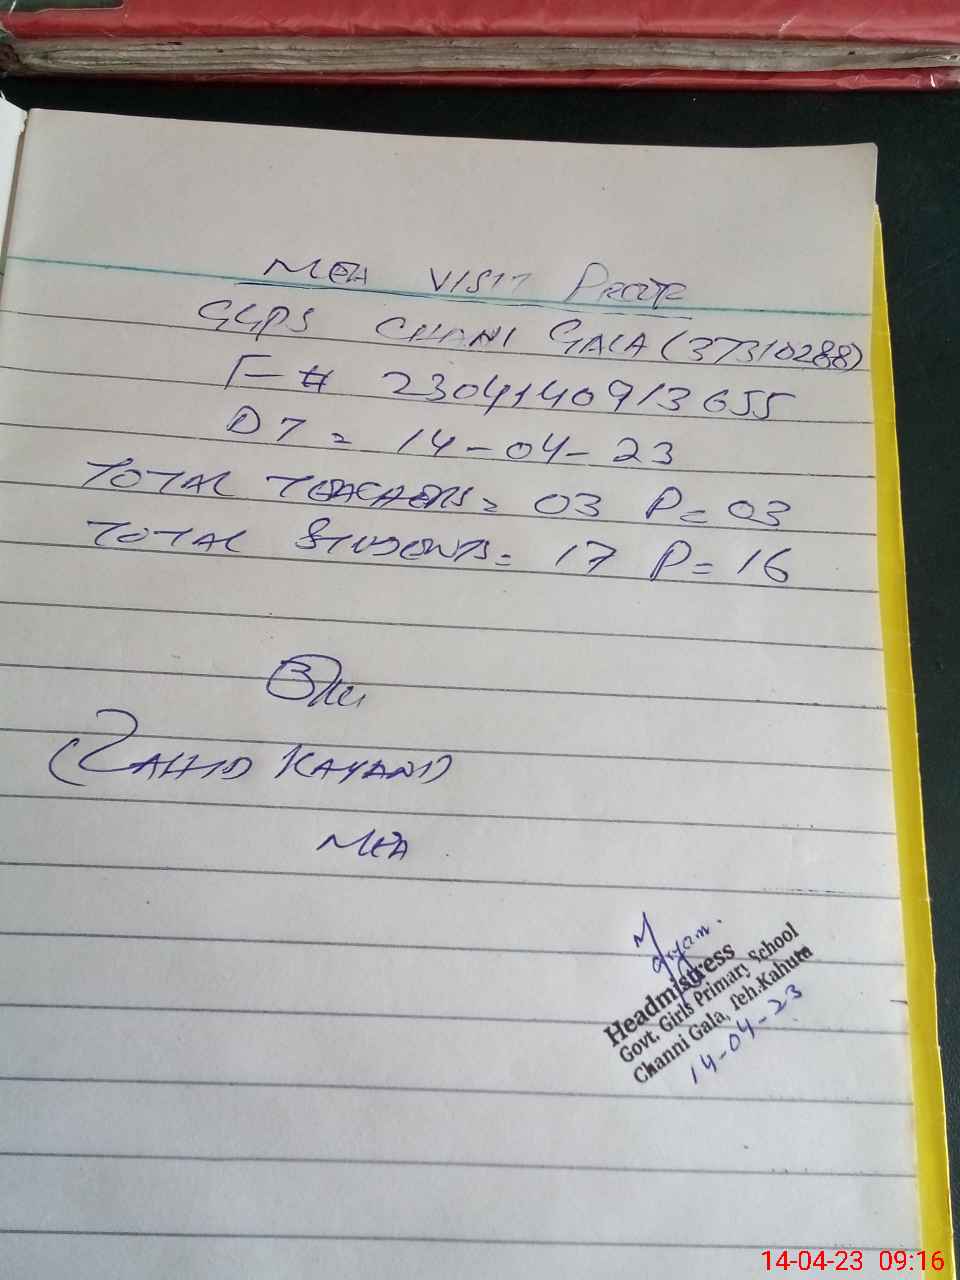 MEA VISIT PROOF
GGPS CHANI GALA (37310288)
F-# 2304140913655
DT = 14-04-23
TOTAL TEACHERS = 03 P = 03
TOTAL STUDENTS = 17 P = 16
(ZAHID KAYANI)
MEA
Headmistress
Govt. Girls Primary School
Channi Gala, Teh.Kahuta
14-04-23
14-04-23 09:16